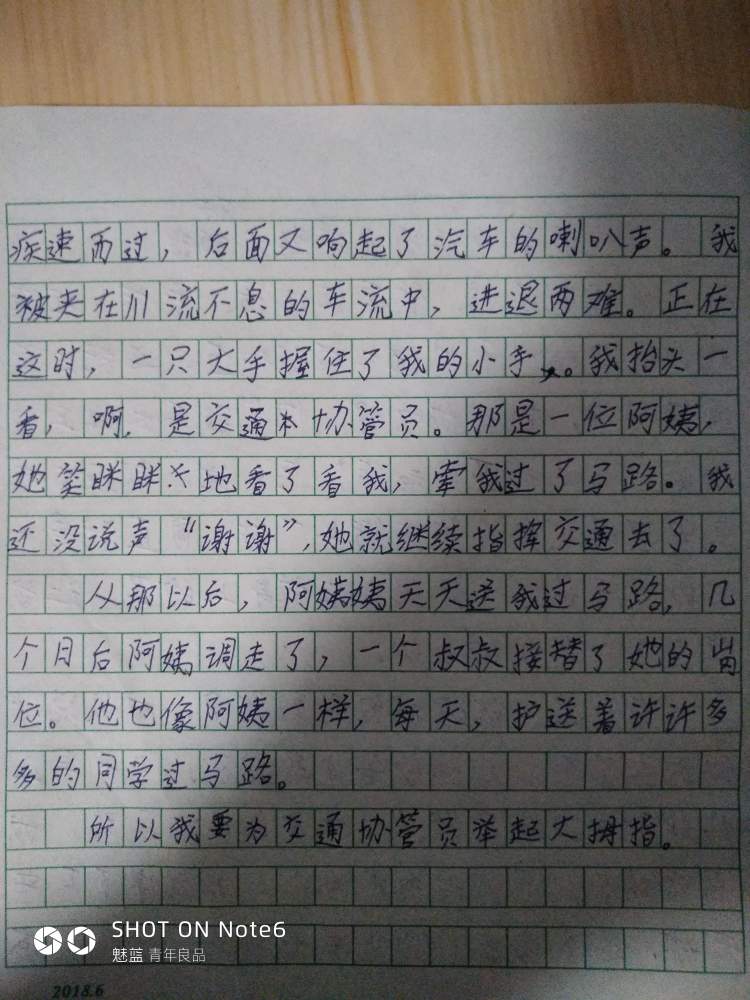 疾速而过，后面又响起了汽车的喇叭声。我
被夹在川流不息的车流中，进退两难。正在
这时，一只大手握住了我的小手。我抬头一
看，啊，是交通协管员。那是一位阿姨，
她笑眯眯地看了看我，牵我过了马路。我
还没说声“谢谢”，她就继续指挥交通去了。
从那以后，阿姨姨天天送我过马路，几
个月后阿姨调走了，一个叔叔接替了她的岗
位。他也像阿姨一样，每天，护送着许许多
多的同学过马路。
所以我要为交通协管员举起大拇指。
SHOT ON Note6
魅蓝 青年良品
2018.6